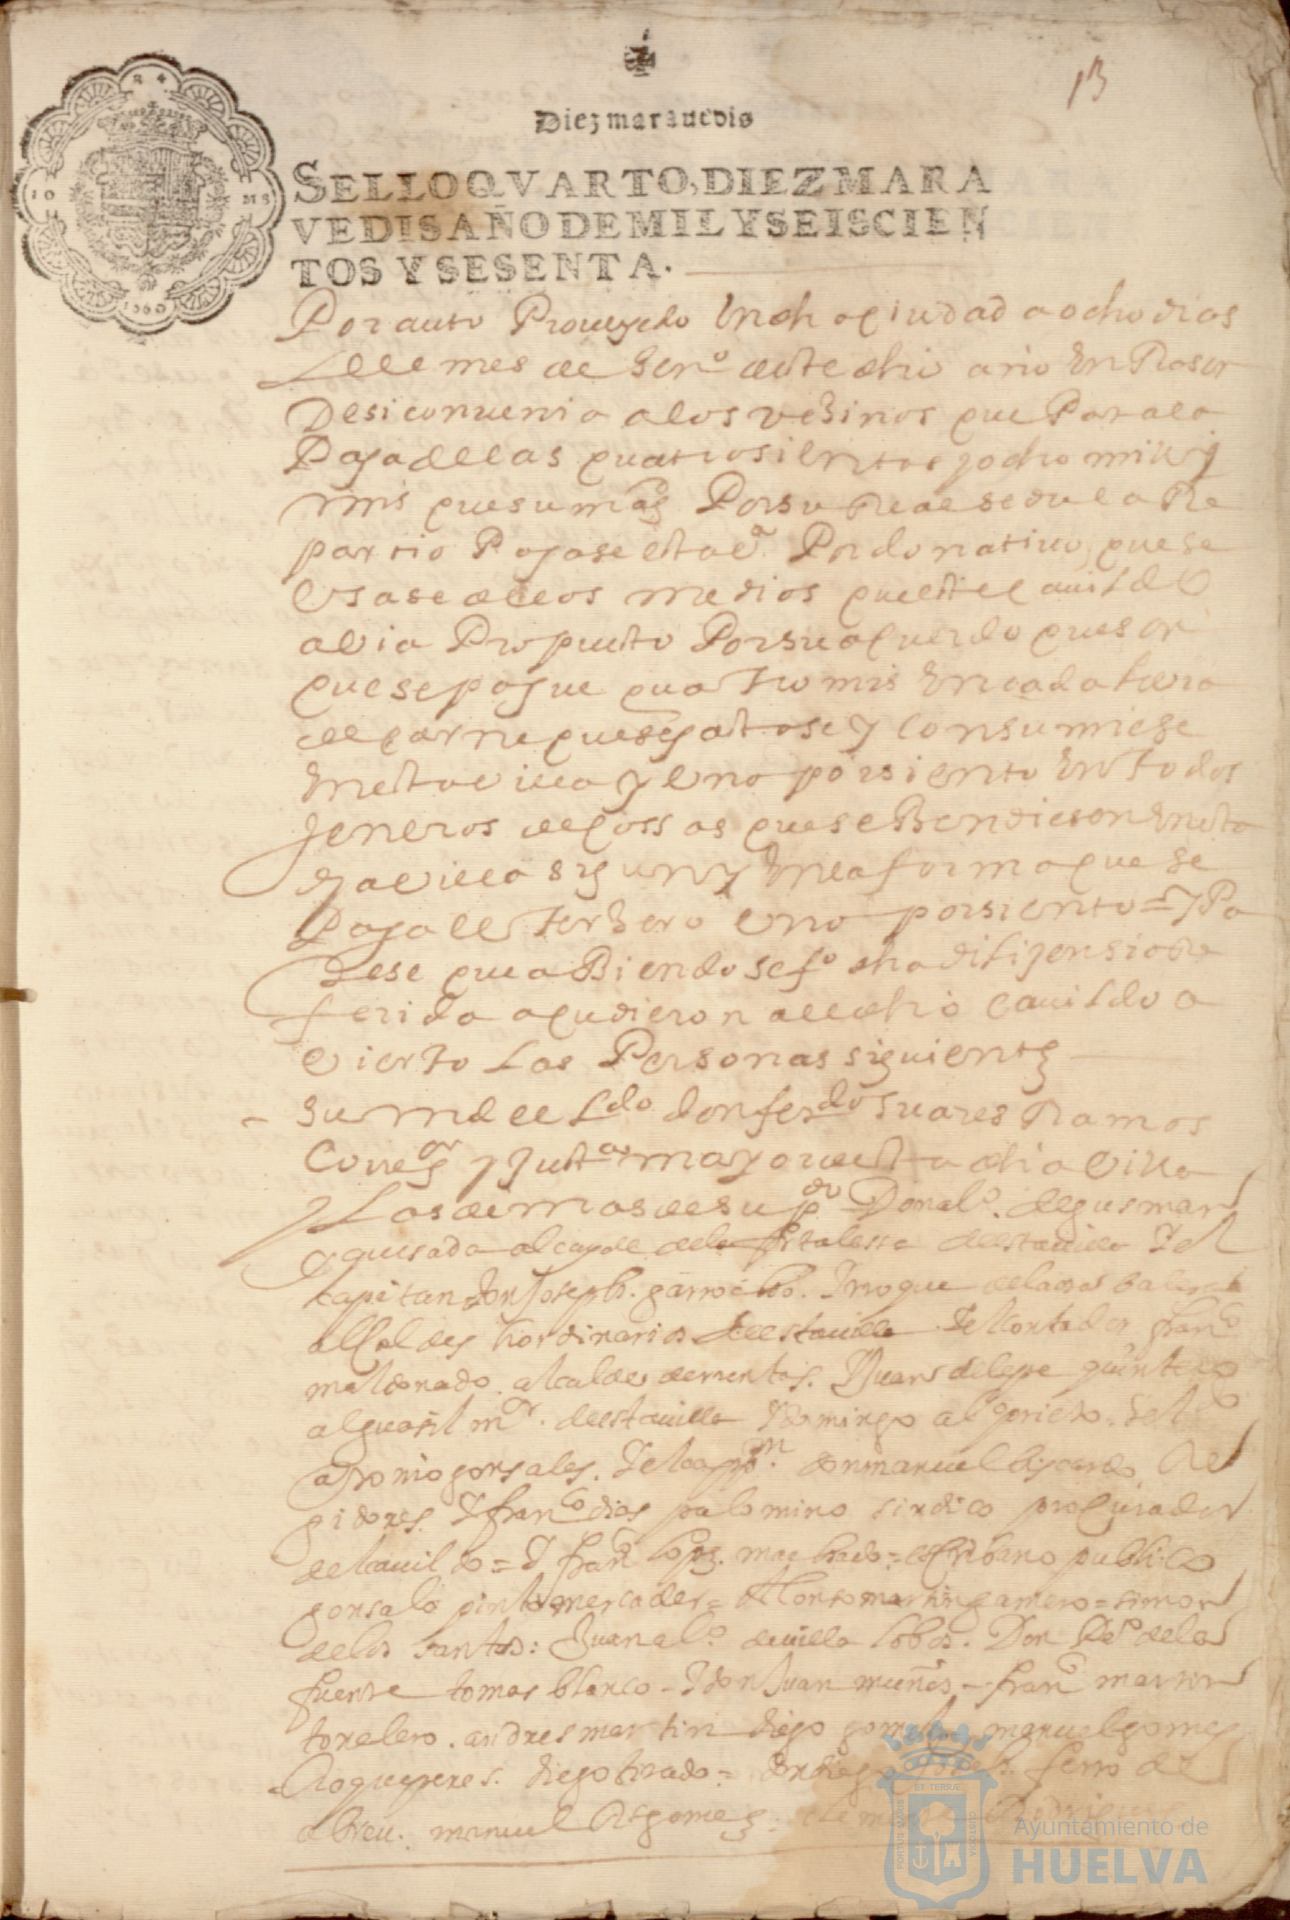 13
Diez maravedis
SELLO QVARTO, DIEZ MARA
VEDIS AÑO DE MIL Y SEISCIEN
TOS Y SESENTA.
24
10
MS
1660
Por auto Proueydo En dha ciudad a ocho dias
del mes de Henº deste dho año En Rason
De si conuenia a los vezinos que Para la
Paga de las quatrosientos y ocho mill
mrs que su magd Por su Real sedula Re
partio Pagase esta vª Por donatiuo, que se
Usase de los medios que este cauildo
auia Propuesto Por su aquerdo que son
que se pague quatro mrs En cada libra
de carne que se gastase y Consumiese
En esta villa y Uno por siento En todos
Jeneros de cossas que se Bendiesen En esta
dha villa sigun y En la forma que se
Paga el terzero Uno por siento = y Pa
rese que aBiendose fº dha dilijensia Re
ferida acudieron al dho cauildo a
Vierto Las Personas siguientes
Su md el Ldo don ferdo Suares Ramos
Correor y Justª mayor desta dha Villa
y Los demas de su
quesada alcayde de la fortalessa desta villa Y el
Capitan don Joseph. garrocho. Y roque de la
alcaldes hordinarios de esta uilla Y el Contador franco
maldonado. alcalde de mentas. Y Juan de lepe quintero
alguasil mor. de esta uilla Y domingo alº prieto. Y el
antonio gonsales. Y el capn. don manuel Re
gidores. Y franco dias palomino sindico procurador
del cauildo = Y franco lopes. machado = escribano publico
gonsalo pinto mercader = Alonso martin gamero = simon
de los santos: Juan alº de uilla lobos. Don Pº de la
fuente tomas blanco - Y don Juan muños - franco martin
tonelero. andres martin diego gomes manuel gomes
Roque peres. diego tirado =
abreu. manuel gomes:
PORTUS MARIS
ET TERRÆ
CUSTODIA
Ayuntamiento de
HUELVA